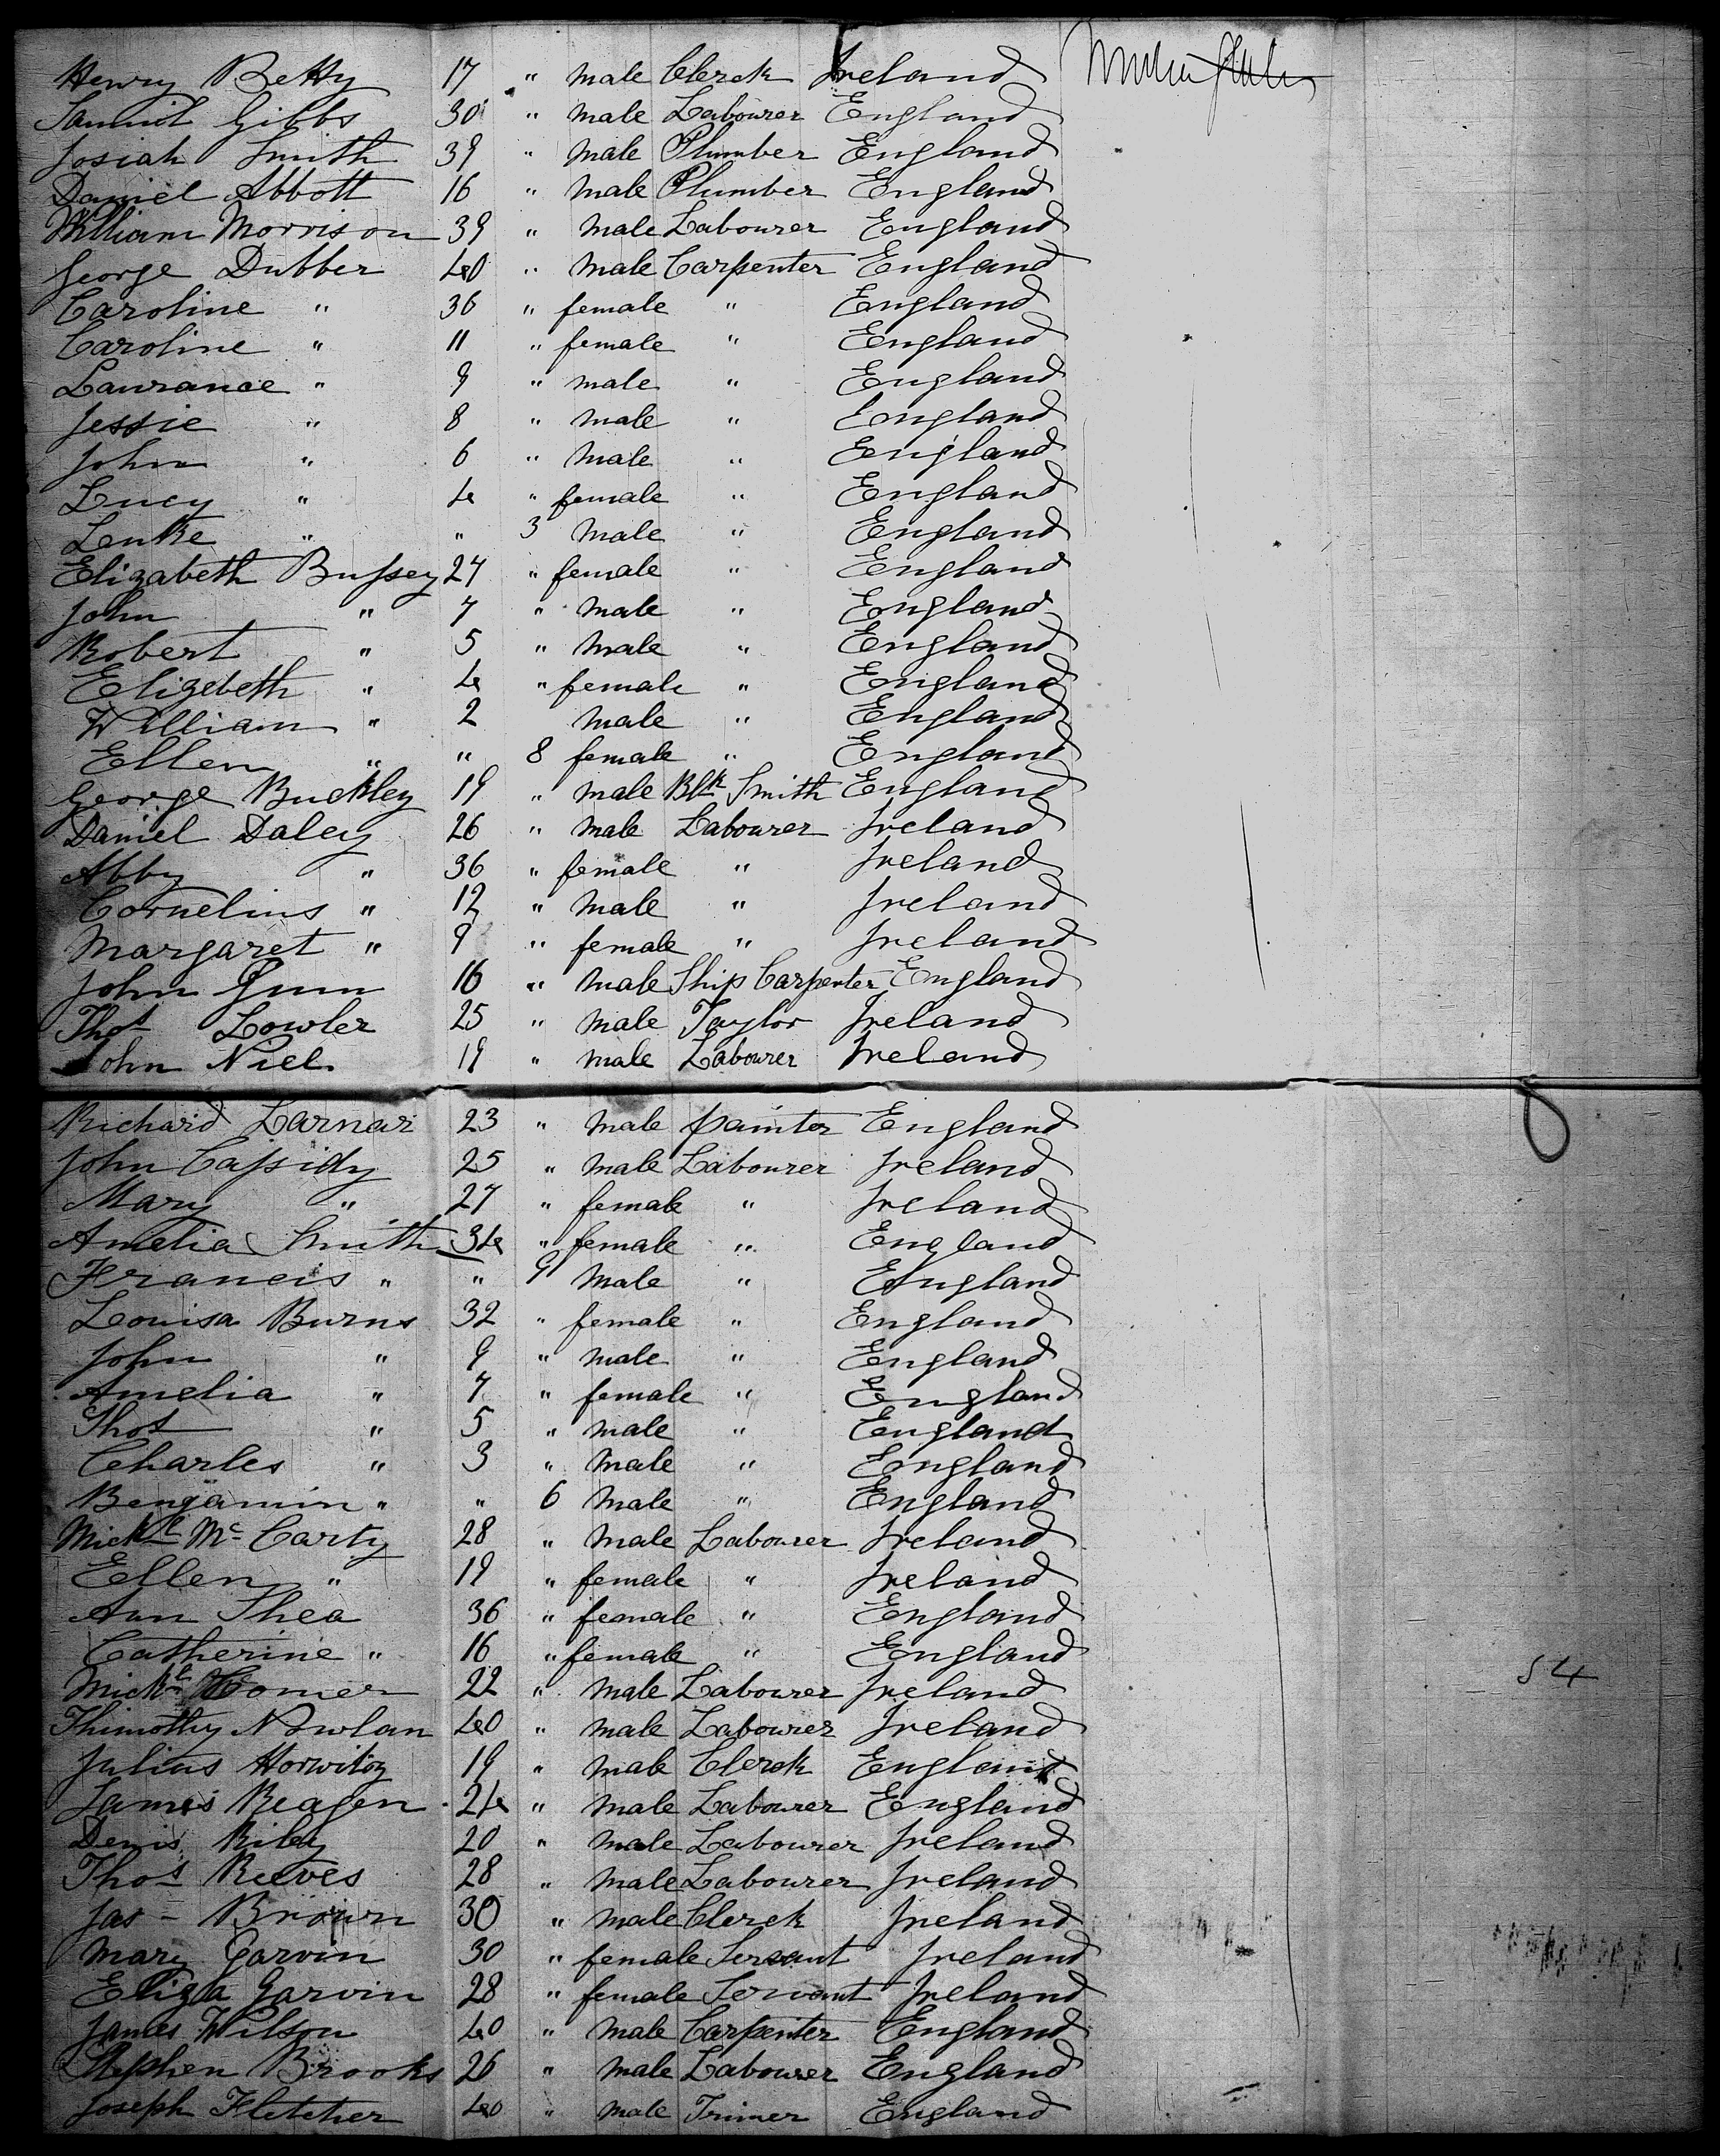 Henry Betty 17 " male Clerck Ireland
Samuel Gibbs 30 " male Labourer England
Josiah Smith 39 " male Plumber England
Daniel Abbott 16 " male Plumber England
William Morrison 39 " male Labourer England
George Dubber 40 " male Carpenter England
Caroline " 36 " female " England
Caroline " 11 " female " England
Laurance " 9 " male " England
Jessie " 8 " male " England
John " 6 " male " England
Lucy " 4 " female " England
Leuke " " 3 male " England
Elizabeth Bussey 27 " female " England
John " 7 " male " England
Robert " 5 " male " England
Elizebeth " 4 " female " England
William " 2 male " England
Ellen " " 8 female " England
George Buckley 19 " male Blk Smith England
Daniel Daley 26 " male Labourer Ireland
Abby " 36 " female " Ireland
Cornelius " 12 " male " Ireland
Margaret " 9 " female " Ireland
John Gunn 16 " male Ship Carpenter England
Thos Lowler 25 " male Taylor Ireland
John Niel 19 " male Labourer Ireland
Richard Larnar 23 " male painter England
John Cassidy 25 " male Labourer Ireland
Mary " 27 " female " Ireland
Amelia Smith 34 " female " England
Francis " " 9 male " England
Louisa Burns 32 " female " England
John " 9 " male " England
Amelia " 7 " female " England
Thos " 5 " male " England
Charles " 3 " male " England
Bengamin " " 6 male " England
Mickl Mc Carty 28 " male Labourer Ireland
Ellen " 19 " female " Ireland
Ann Shea 36 " female " England
Catherine " 16 " female " England
Mickl Comer 22 " male Labourer Ireland 54
Thimothy Nowlan 40 " male Labourer Ireland
Julius Horwitz 19 " male Clerck England
James Reagen 24 " male Labourer England
Denis Riley 20 " male Labourer Ireland
Thos Reeves 28 " male Labourer Ireland
Jas - Brown 30 " male Clerck Ireland
Mary Garvin 30 " female Servant Ireland
Eliza Garvin 28 " female Servant Ireland
James Wilson 40 " male Carpenter England
Stephen Brooks 26 " male Labourer England
Joseph Fletcher 40 " male Trimer England